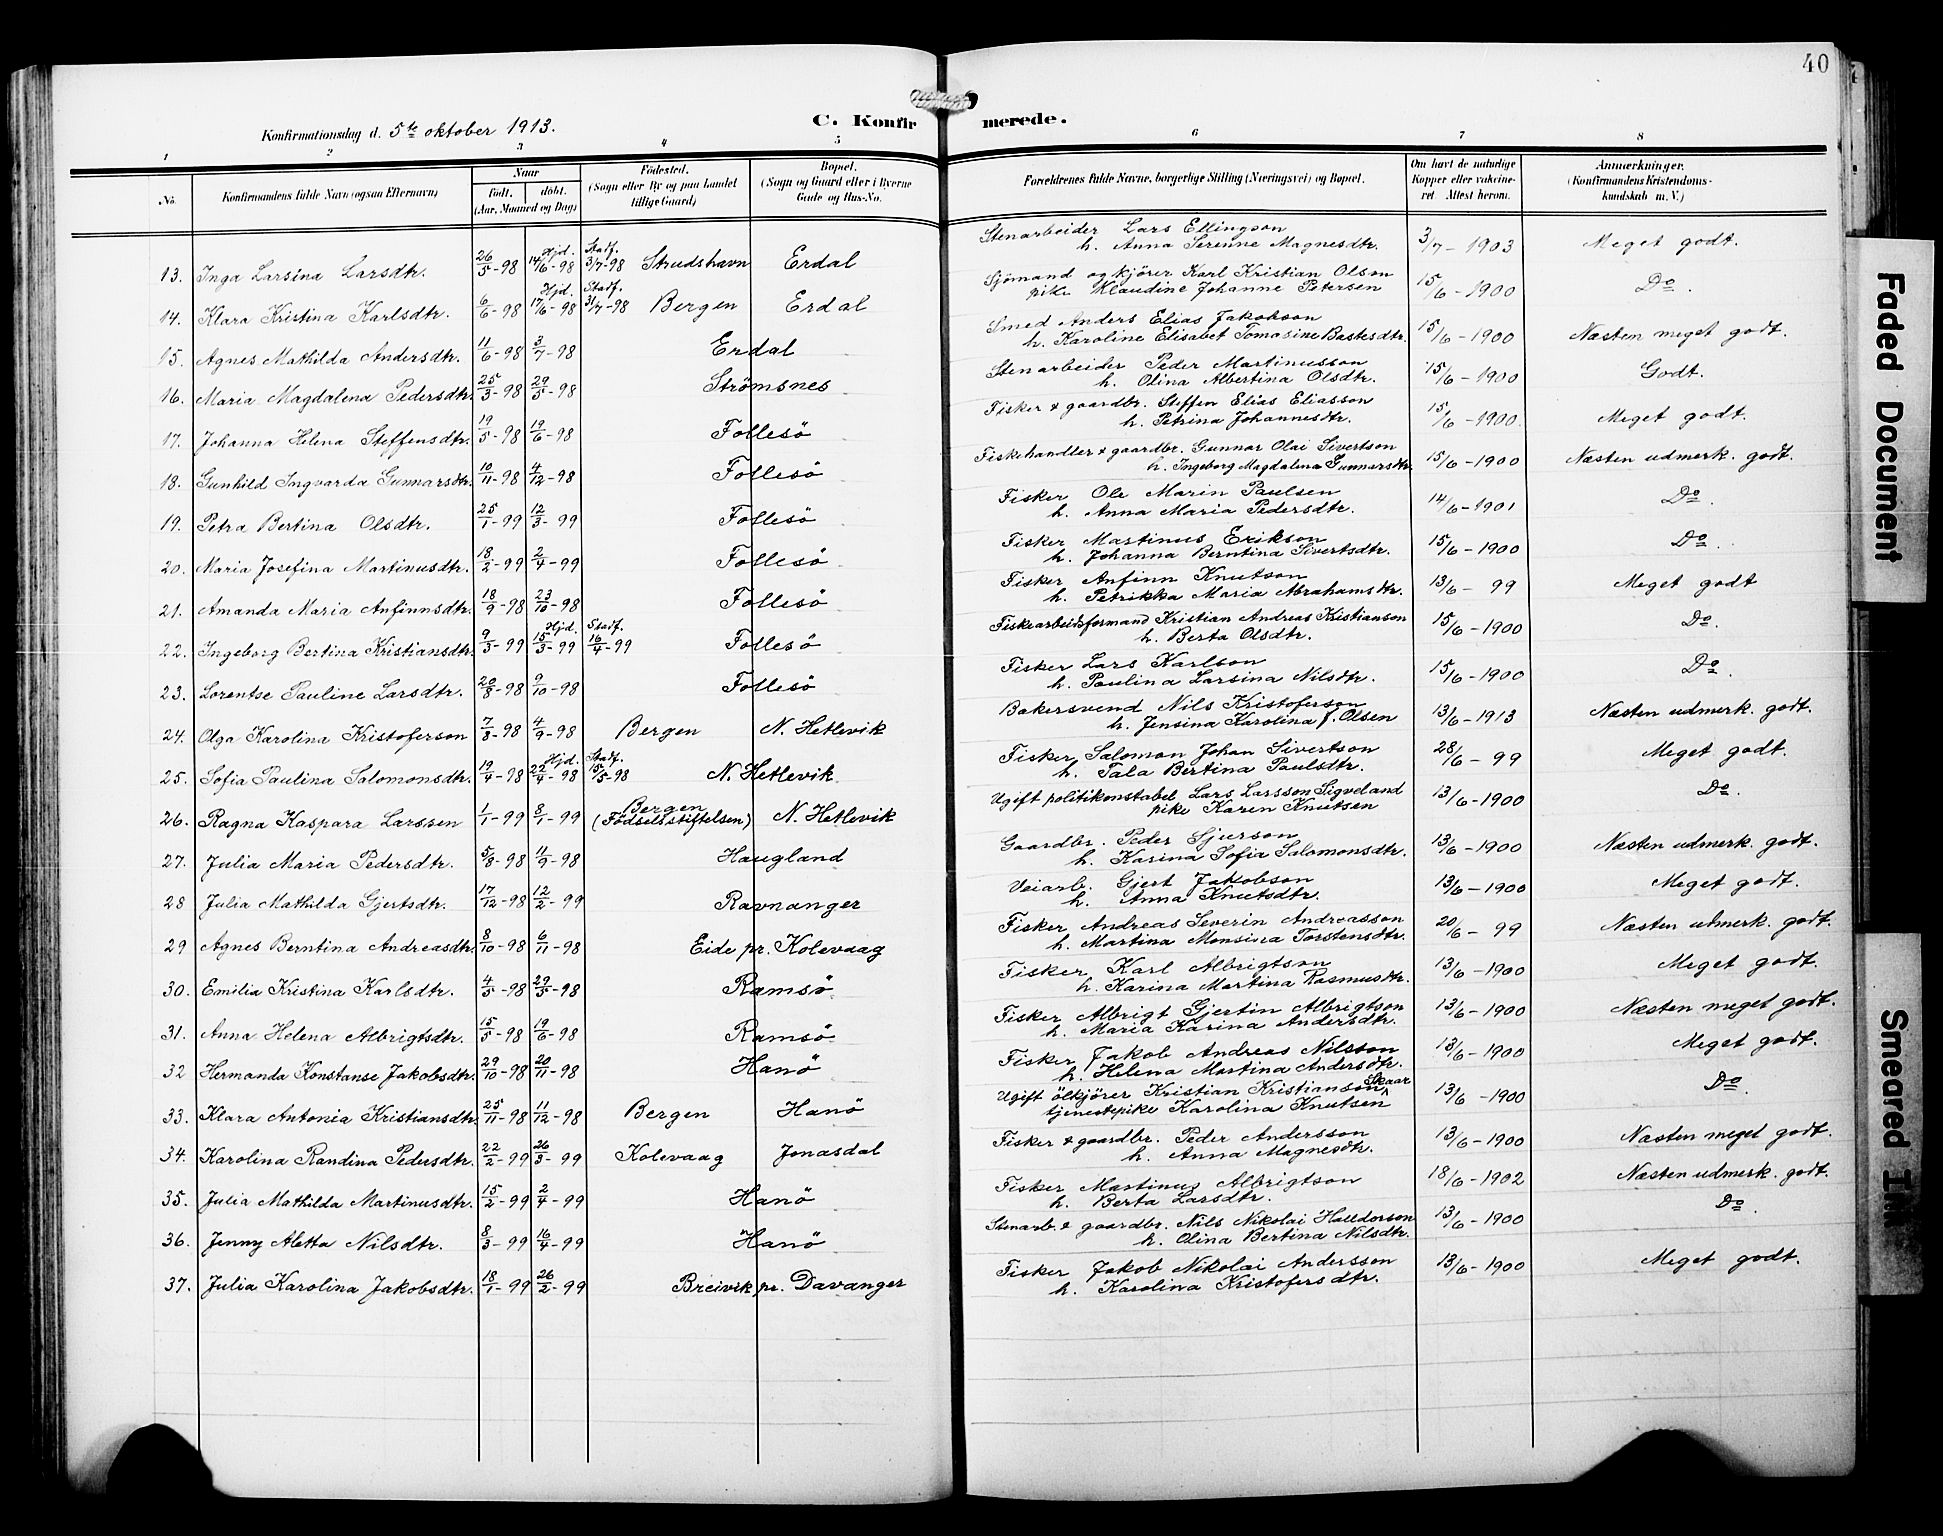 40
Konfirmationsdag d. 5te oktober 1913.
C. Konfirmerede.
1 2 3 4 5 6 7 8
No. Konfirmandens fulde Navn (ogsaa Efternavn) Naar födt. döbt. (Aar, Maaned og Dag) Födested. (Sogn eller By og paa Landet tillige Gaard) Bopæl. (Sogn og Gaard eller i Byerne Gade og Hus-No. Forældrenes fulde Navne, borgerlige Stilling (Næringsvei) og Bopæl. Om havt de naturlige Kopper eller vakcineret. Attest herom. Anmærkninger. (Konfirmandens Kristendomskundskab m. V.)
13. Inga Larsina Larsdtr. 26/5-98 Hjd. 14/6-98 Stadf. 3/7-98 Strudshavn Erdal Stenarbeider Lars Ellingson h. Anna Serenne Magnesdtr. 3/7-1903 Meget godt.
14. Klara Kristina Karlsdtr. 6/6-98 Hjd. 17/6-98 Stadf. 31/7-98 Bergen Erdal Sjömand og kjörer Karl Kristian Olson pike Klaudine Johanne Petersen 15/6-1900 Do.
15. Agnes Mathilda Andersdtr. 11/6-98 3/7-98 Erdal Smed Anders Elias Jakobson h. Karoline Elisabet Tomasine Bastesdtr. 15/6-1900 Næsten meget godt.
16. Maria Magdalena Pedersdtr. 25/3-98 29/5-98 Strömsnes Stenarbeider Peder Martinusson h. Olina Albertina Olsdtr. 15/6-1900 Godt.
17. Johanna Helena Steffensdtr. 19/5-98 19/6-98 Follesö Fisker & gaardbr. Steffen Elias Eliasson h. Petrina Johannesdtr. 15/6-1900 Meget godt.
18. Gunhild Ingvarda Gunnarsdtr. 10/11-98 4/12-98 Follesö Fiskehandler & gaardbr. Gunnar Olai Sivertson h. Ingeborg Magdalena Gunnarsdtr. 15/6-1900 Næsten udmerk. godt.
19. Petra Bertina Olsdtr. 25/1-99 12/3-99 Follesö Fisker Ole Marin Paulsen h. Anna Maria Pedersdtr. 14/6-1901 Do.
20. Maria Josefina Martinusdtr. 18/2-99 2/4-99 Follesö Fisker Martinus Erikson h. Johanna Berntina Sivertsdtr. 15/6-1900 Do.
21. Amanda Maria Anfinnsdtr. 18/9-98 23/10-98 Follesö Fisker Anfinn Knutson h. Petrikka Maria Abrahamsdtr. 13/6-99 Meget godt
22. Ingeborg Bertina Kristiansdtr. 9/3-99 Hjd. 15/3-99 Stadf. 16/4-99 Follesö Fiskearbeidsformand Kristian Andreas Kristianson h. Berta Olsdtr. 15/6-1900 Do.
23. Lorentse Pauline Larsdtr. 20/8-98 9/10-98 Follesö Fisker Lars Karlson h. Paulina Larsina Nilsdtr. 15/6-1900 Do.
24. Olga Karolina Kristoferson 7/8-98 4/9-98 Bergen N. Hetlevik Bakersvend Nils Kristoferson h. Jensina Karolina f. Olsen 13/6-1913 Næsten udmerk. godt.
25. Sofia Paulina Salomonsdtr. 19/4-98 Hjd. 22/4-98 Stadf. 15/5-98 N. Hetlevik Fisker Salomon Johan Sivertson h. Tala Bertina Paulsdtr. 28/6-99 Meget godt.
26. Ragna Kaspara Larssen 1/1-99 8/1-99 Bergen (Födselsstiftelsen) N. Hetlevik Ugift politikonstabel Lars Larsson Sigveland pike Karen Knutsen 13/6-1900 Do.
27. Julia Maria Pedersdtr. 5/8-98 11/9-98 Haugland Gaardbr. Peder Sjurson h. Karina Sofia Salomonsdtr. 13/6-1900 Næsten udmerk. godt.
28 Julia Mathilda Gjertsdtr. 17/12-98 12/2-99 Ravnanger Veiarb. Gjert Jakobson h. Anna Knutsdtr. 13/6-1900 Meget godt.
29 Agnes Berntina Andreasdtr. 8/10-98 6/11-98 Eide pr. Kolevaag Fisker Andreas Severin Andreasson h. Martina Monsina Torstensdtr. 20/6-99 Næsten udmerk. godt.
30. Emilia Kristina Karlsdtr. 4/5-98 29/5-98 Ramsö Fisker Karl Albrigtson h. Karina Martina Rasmusdtr. 13/6-1900 Meget godt.
31. Anna Helena Albrigtsdtr. 15/5-98 19/6-98 Ramsö Fisker Albrigt Gjertin Albrigtson h. Maria Karina Andersdtr. 13/6-1900 Næsten meget godt.
32 Hermanda Konstanse Jakobsdtr. 29/10-98 20/11-98 Hanö Fisker Jakob Andreas Nilsson h. Helena Martina Andersdtr. 13/6-1900 Meget godt.
33. Klara Antonia Kristiansdtr 25/11-98 11/12-98 Bergen Hanö Ugift ölkjörer Kristian Kristianson Skaar tjenestepike Karolina Knutsen 13/6-1900 Do.
34. Karolina Randina Pedersdtr. 22/2-99 26/3-99 Kolevaag Jonasdal Fisker & gaardbr. Peder Andersson h. Anna Magnesdtr. 13/6-1900 Næsten meget godt.
35. Julia Mathilda Martinusdtr. 15/2-99 2/4-99 Hanö Fisker Martinus Albrigtson h. Berta Larsdtr. 18/6-1902 Næsten udmerk. godt.
36. Jenny Aletta Nilsdtr. 8/3-99 16/4-99 Hanö Stenarb. & gaardbr. Nils Nikolai Halldorson h. Olina Bertina Nilsdtr. 13/6-1900 Do.
37. Julia Karolina Jakobsdtr. 18/1-99 26/2-99 Breivik pr. Davanger Fisker Jakob Nikolai Andersson h. Karolina Kristofersdtr. 13/6-1900 Meget godt.
Faded Document
Smeared Ink